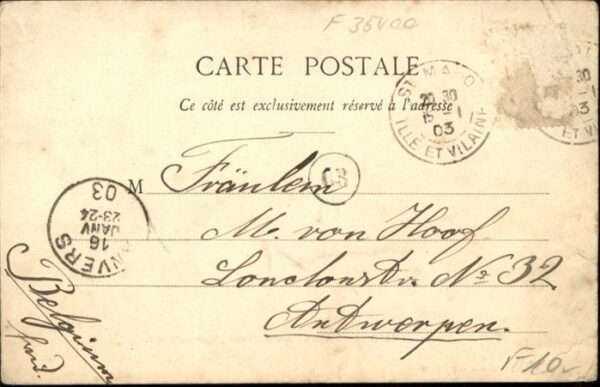 F 35400
CARTE POSTALE
Ce côté est exclusivement réservé à l'adresse
ST MALO
20 30
15 -1
03
ILLE ET VILAINE
30
-1
03
ET VILAINE
M Fräulein
M. van Hoof
Nº 32
Antwerpen.
Belgium
ANVERS
16
JANV
23-24
03
F10-